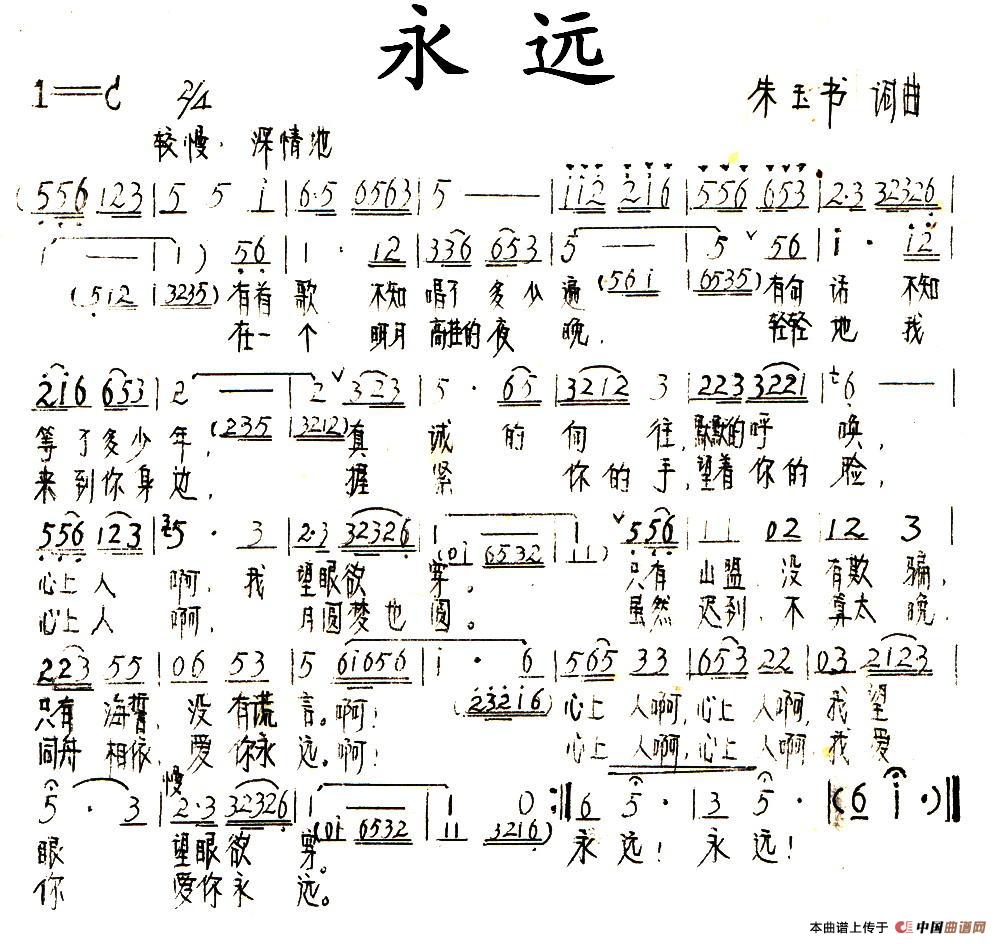 永 远
1=C 2/4 朱玉书 词曲
较慢.深情地
(556 123 | 5 5 i | 6·5 0563 | 5 — — | ii2 2i6 | 556 653 | 2·3 32326 |
i — | 1) 56 | 1 · 12 | 336 653 | 5 — | 5 ˅ 56 | i · i2 |
(512 | 3235) (561 | 6535)
有首歌 不知唱了多少遍 有句话 不知
在一个 明月高挂的夜晚. 轻轻地我
2i6 653 | 2 — | 2 ˅ 323 | 5 · 65 | 3212 3 | 223 3221 | 6 — — |
(235 | 3212)
等了多少年, 真诚的向往,默默的呼唤,
来到你身边, 握紧你的手,望着你的脸,
556 123 | 5 · 3 | 2·3 32326 | 1 — | ˅ 556 | 11 02 | 12 3 |
(0i 6532 | 11)
心上人啊,我望眼欲穿。 只有山盟,没有欺骗,
心上人啊, 月圆梦也圆。 虽然迟到,不算太晚.
223 55 | 06 53 | 5 6i656 | i · 6 | 565 33 | 653 22 | 03 2123 |
(232i6)
只有海誓,没有谎言。啊! 心上人啊,心上人啊,我望
同舟相依,爱你永远。啊! 心上人啊,心上人啊,我爱
慢
5 · 3 | 2·3 32326 | 1 — | 1 0 :‖ 6 5 · | 3 5 · | (6 i ·) ‖
(0i 6532 | 11 3216)
眼 望眼欲穿。 永远! 永远!
你 爱你永远。
本曲谱上传于 中国曲谱网